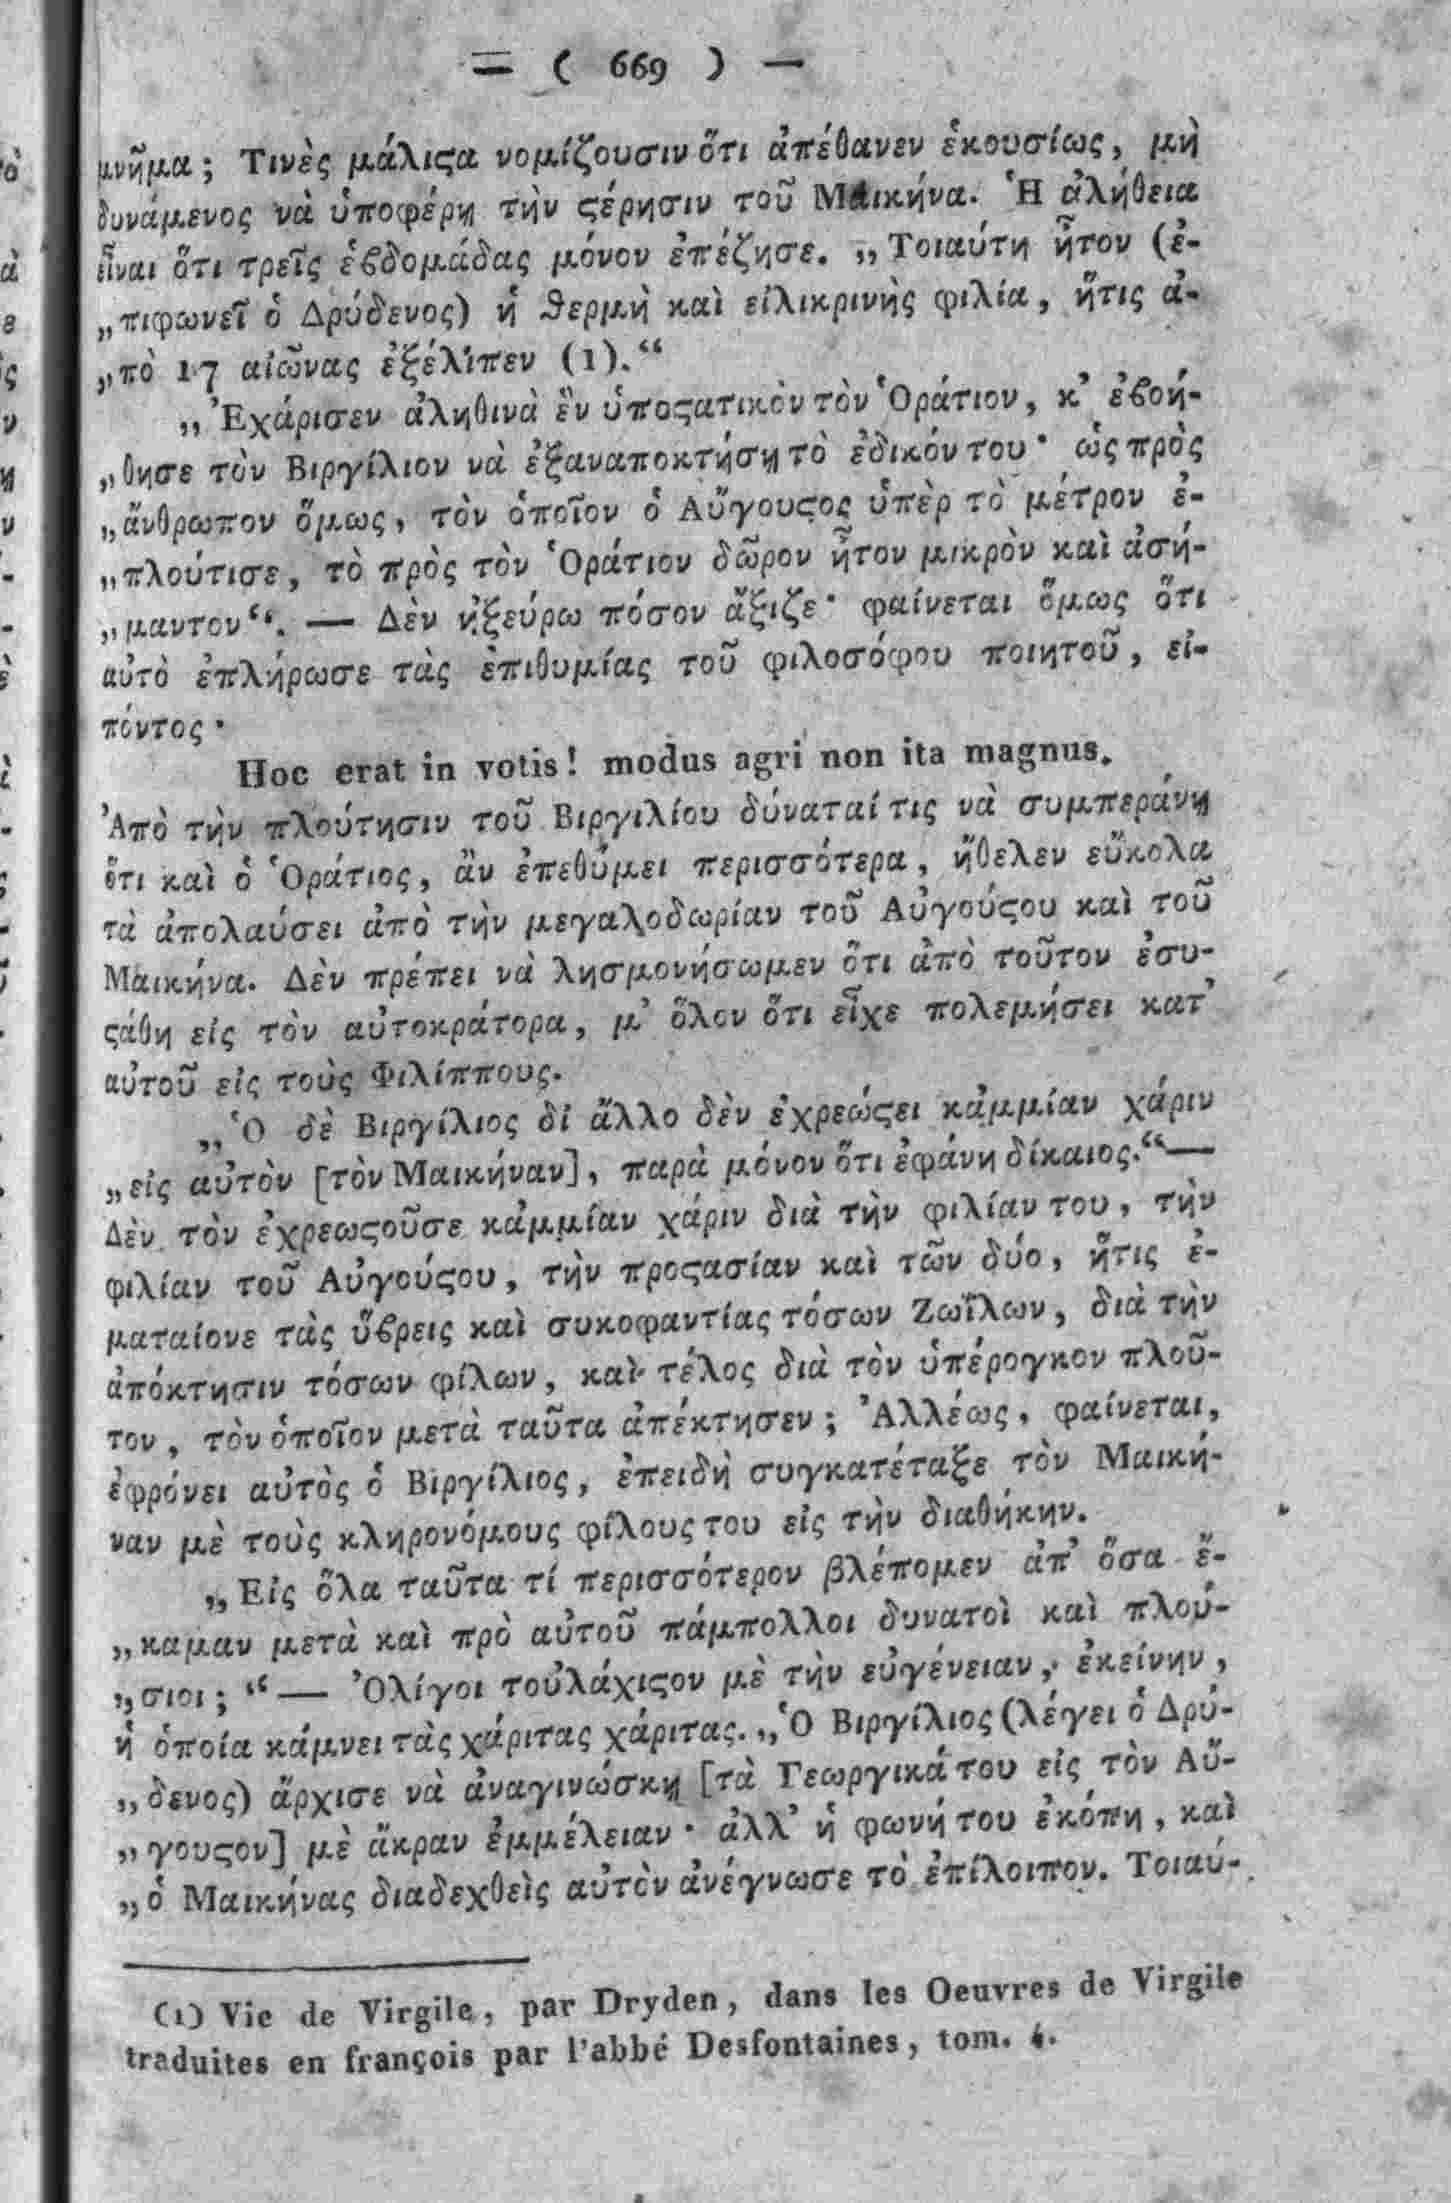 = ( 669 ) —
μνῆμα; Τινὲς μάλιϛα νομίζουσιν ὅτι ἀπέθανεν ἑκουσίως, μὴ
δυνάμενος νὰ ὑποφέρῃ τὴν ϛέρησιν τοῦ Μαικήνα. Ἡ ἀλήθεια
εἶναι ὅτι τρεῖς ἑβδομάδας μόνον ἐπέζησε. „Τοιαύτη ἦτον (ἐ-
„πιφωνεῖ ὁ Δρύδενος) ἡ θερμὴ καὶ εἰλικρινὴς φιλία, ἥτις ἀ-
„πὸ 17 αἰῶνας ἐξέλιπεν (1).“
„Ἐχάρισεν ἀληθινὰ ἓν ὑποϛατικὸν τὸν Ὁράτιον, κ’ ἐβοή-
„θησε τὸν Βιργίλιον νὰ ἐξαναποκτήσῃ τὸ ἐδικόν του· ὡς πρὸς
„ἄνθρωπον ὅμως, τὸν ὁποῖον ὁ Αὔγουϛος ὑπὲρ τὸ μέτρον ἐ-
„πλούτισε, τὸ πρὸς τὸν Ὁράτιον δῶρον ἦτον μικρὸν καὶ ἀσή-
„μαντον“. — Δὲν ἠξεύρω πόσον ἄξιζε· φαίνεται ὅμως ὅτι
αὐτὸ ἐπλήρωσε τὰς ἐπιθυμίας τοῦ φιλοσόφου ποιητοῦ, εἰ-
πόντος·
Hoc erat in votis! modus agri non ita magnus.
Ἀπὸ τὴν πλούτησιν τοῦ Βιργιλίου δύναταί τις νὰ συμπεράνῃ
ὅτι καὶ ὁ Ὁράτιος, ἂν ἐπεθύμει περισσότερα, ἤθελεν εὔκολα
τὰ ἀπολαύσει ἀπὸ τὴν μεγαλοδωρίαν τοῦ Αὐγούϛου καὶ τοῦ
Μαικήνα. Δὲν πρέπει νὰ λησμονήσωμεν ὅτι ἀπὸ τοῦτον ἐσυ-
ϛάθη εἰς τὸν αὐτοκράτορα, μ’ ὅλον ὅτι εἶχε πολεμήσει κατ’
αὐτοῦ εἰς τοὺς Φιλίππους.
„Ὁ δὲ Βιργίλιος δἰ ἄλλο δὲν ἐχρεώϛει κἀμμίαν χάριν
„εἰς αὐτὸν [τὸν Μαικήναν], παρὰ μόνον ὅτι ἐφάνη δίκαιος.“—
Δὲν τὸν ἐχρεωϛοῦσε κἀμμίαν χάριν διὰ τὴν φιλίαν του, τὴν
φιλίαν τοῦ Αὐγούϛου, τὴν προϛασίαν καὶ τῶν δύο, ἥτις ἐ-
ματαίονε τὰς ὕβρεις καὶ συκοφαντίας τόσων Ζωΐλων, διὰ τὴν
ἀπόκτησιν τόσων φίλων, καὶ τέλος διὰ τὸν ὑπέρογκον πλοῦ-
τον, τὸν ὁποῖον μετὰ ταῦτα ἀπέκτησεν; Ἀλλέως, φαίνεται,
ἐφρόνει αὐτὸς ὁ Βιργίλιος, ἐπειδὴ συγκατέταξε τὸν Μαική-
ναν μὲ τοὺς κληρονόμους φίλους του εἰς τὴν διαθήκην.
„Εἰς ὅλα ταῦτα τί περισσότερον βλέπομεν ἀπ’ ὅσα ἔ-
„καμαν μετὰ καὶ πρὸ αὐτοῦ πάμπολλοι δυνατοὶ καὶ πλού-
„σιοι; “— Ὀλίγοι τοὐλάχιϛον μὲ τὴν εὐγένειαν, ἐκείνην,
ἡ ὁποία κάμνει τὰς χάριτας χάριτας. „Ὁ Βιργίλιος (λέγει ὁ Δρύ-
„δενος) ἄρχισε νὰ ἀναγινώσκῃ [τὰ Γεωργικά του εἰς τὸν Αὔ-
„γουϛον] μὲ ἄκραν ἐμμέλειαν· ἀλλ’ ἡ φωνή του ἐκόπη, καὶ
„ὁ Μαικήνας διαδεχθεὶς αὐτὸν ἀνέγνωσε τὸ ἐπίλοιπον. Τοιαύ-
(1) Vie de Virgile, par Dryden, dans les Oeuvres de Virgile
traduites en françois par l'abbé Desfontaines, tom. 4.